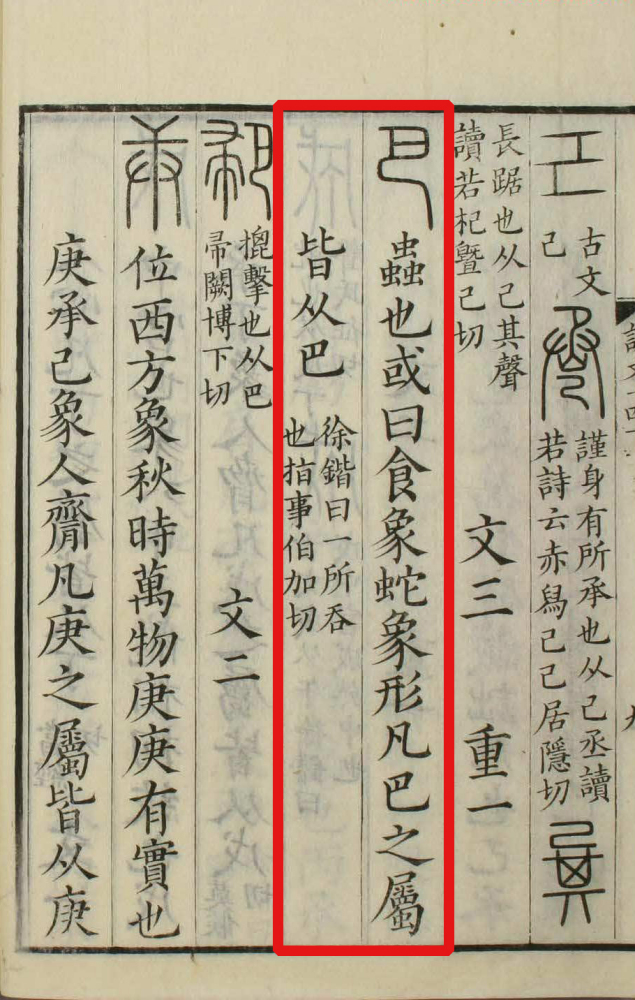 古文
己
𢀒
謹身有所承也从己丞讀
若詩云赤舄己己居隱切
㠱
長踞也从己其聲
讀若杞曁己切
文三 重一
巴
蟲也或曰食象蛇象形凡巴之屬
皆从巴
徐鍇曰一所吞
也指事伯加切
𢀜
搊擊也从巴
帚闕博下切
文二
庚
位西方象秋時萬物庚庚有實也
庚承己象人𪗆凡庚之屬皆从庚